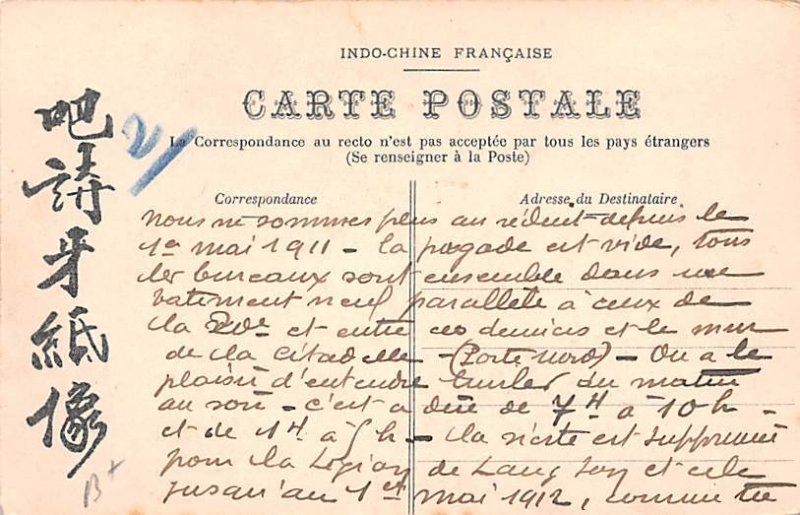 INDO-CHINE FRANÇAISE
CARTE POSTALE
La Correspondance au recto n'est pas acceptée par tous les pays étrangers
(Se renseigner à la Poste)
Correspondance
Adresse du Destinataire
吧請牙紙像
2/
Nous ne sommes plus au réduit depuis le
1er mai 1911 – la pagode est vide, tous
les bureaux sont ensemble dans une
batiment neuf parallèle à ceux de
la 20e et entre ces derniers et le mur
de la citadelle – (Porte nord) – On a le
plaisir d'entendre hurler du matin
au soir – c'est a dire de 7H à 10h –
et de 1H à 5h – la sieste est supprimée
pour la Légion de Lang Son et cela
jusqu'au 1er mai 1912, comme tu
B+